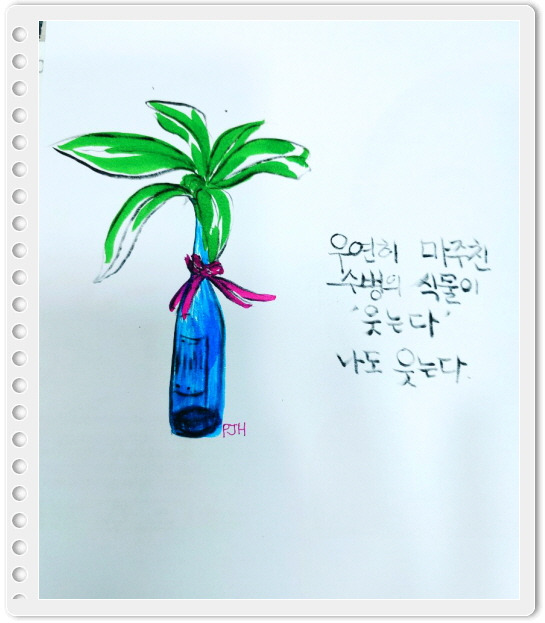 우연히 마주친
수병의 식물이
'웃는다'
나도 웃는다.
PJH